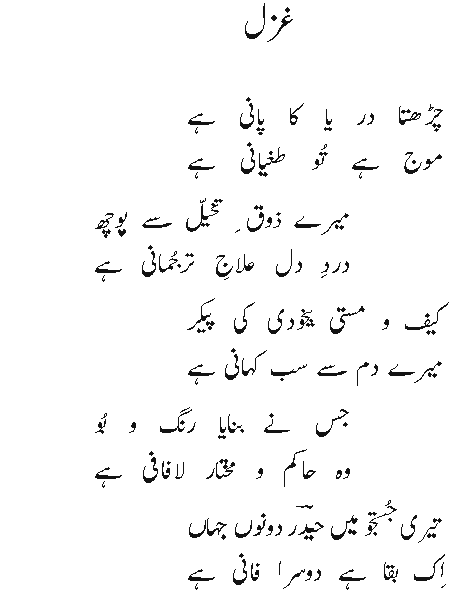 غزل
چڑھتا در یا کا پانی ہے
موج ہے تُو طغیانی ہے
میرے ذوقِ تخیّل سے پوچھ
دردِ دل علاجِ ترجُمانی ہے
کیف و مستی بیخودی کی پیکر
میرے دم سے سب کہانی ہے
جس نے بنایا رنگ و بُو
وہ حاکم و مختار لافانی ہے
تیری جُستجُو میں حیدؔر دونوں جہاں
اِک بقا ہے دوسرا فانی ہے